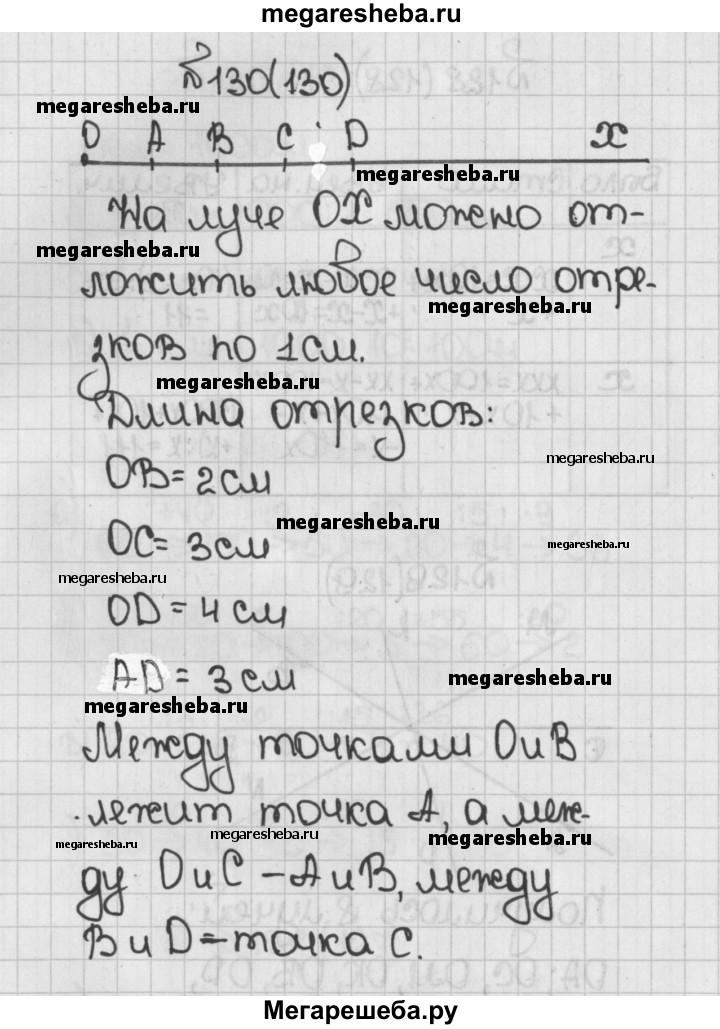 megaresheba.ru
№130(130)
megaresheba.ru
O A B C D x
megaresheba.ru
На луче OX можно от-
megaresheba.ru
ложить любое число отре-
megaresheba.ru
зков по 1см.
megaresheba.ru
Длина отрезков:
OB = 2см
megaresheba.ru
megaresheba.ru
OC = 3см
megaresheba.ru
megaresheba.ru
OD = 4 см
AD = 3 см
megaresheba.ru
megaresheba.ru
Между точками O и B
лежит точка A, а меж-
megaresheba.ru
megaresheba.ru
megaresheba.ru
ду O и C – A и B, между
B и D – точка C.
Мегарешеба.ру